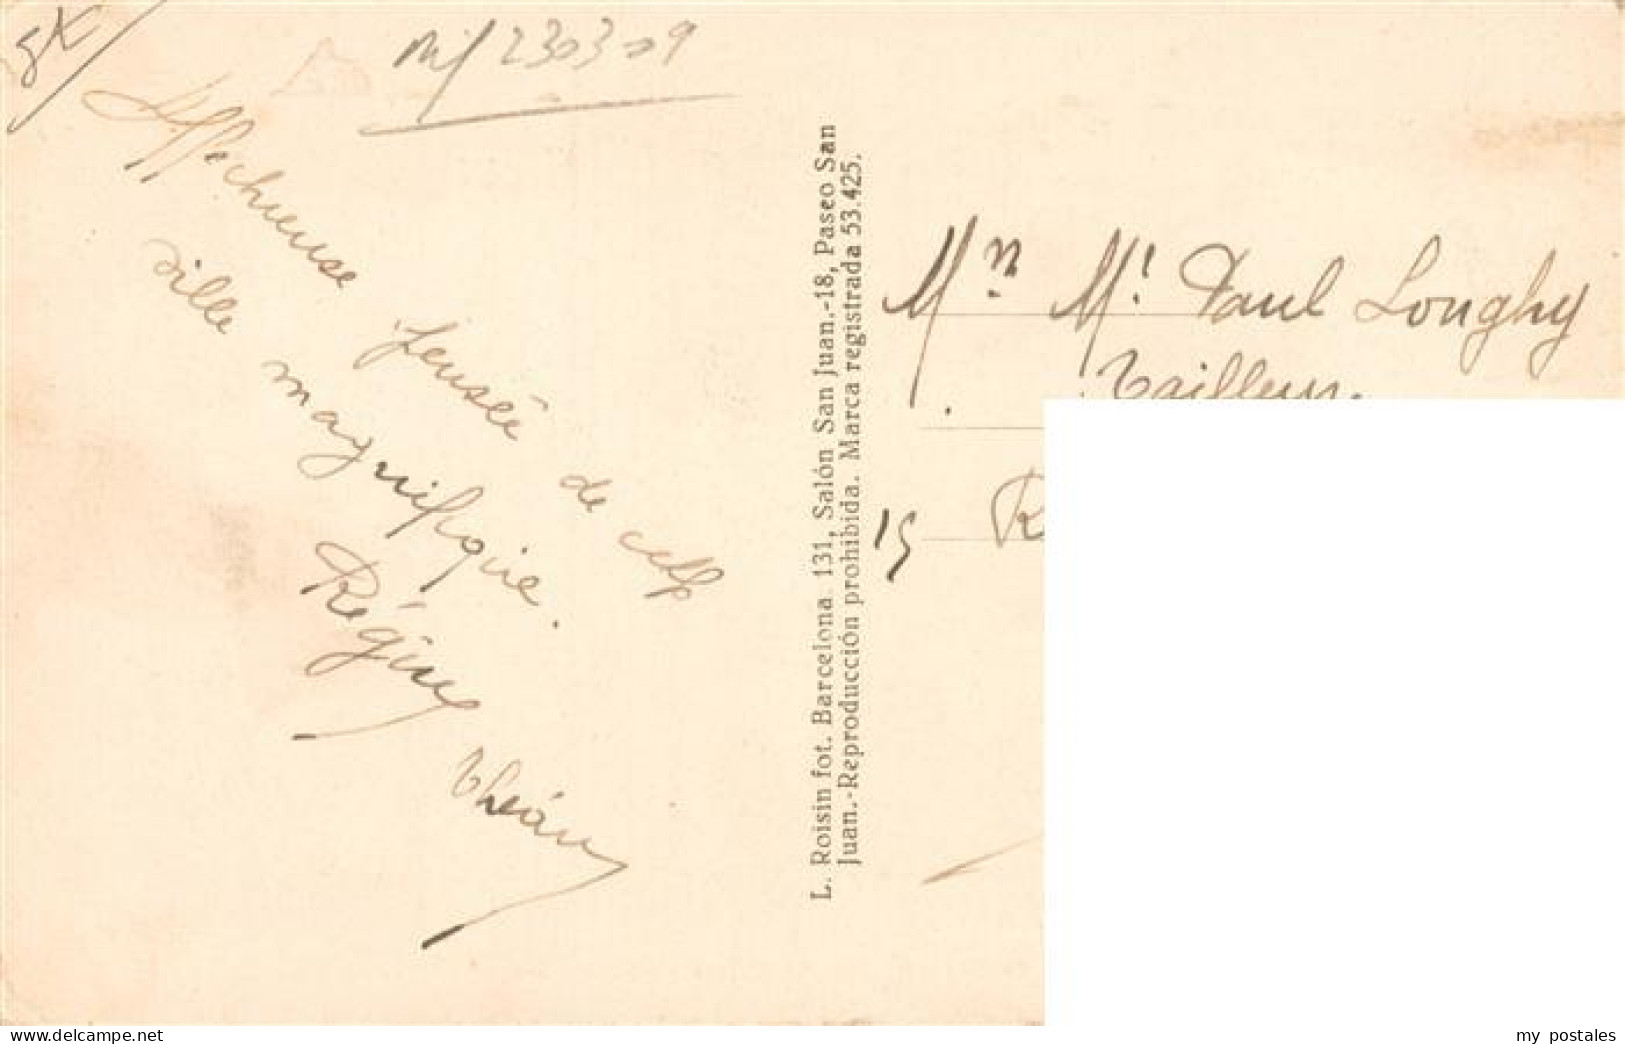 Affectueuse pensée de cette
ville magnifique.
Régine
L. Roisin fot. Barcelona 131, Salón San Juan.-18, Paseo San
Juan.-Reproducción prohibida. Marca registrada 53.425.
Paul Longhy
Tailleur
15
www.delcampe.net
my_postales